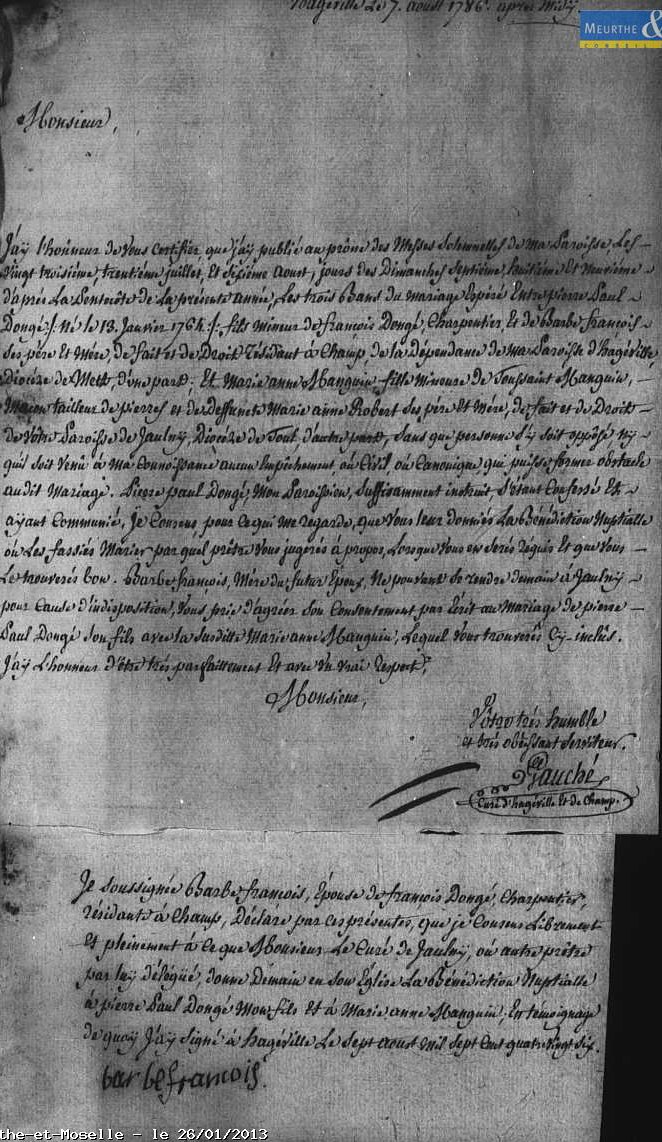 hagéville Le 7. aoust 1786. après Midy.
MEURTHE &
CONSEIL
Monsieur,
J'ay l'honneur de vous certifier que j'ay publié au prône des Messes Solemnelles de ma Paroisse, Les
vingt troisième, trentième juillet, Et Sixième Aoust, jours des Dimanches Septième, huitième Et Neuvième
d'après La Pentecôte de La présente année, Les trois Bans du mariage Espéré Entre pierre Paul
Dongé /: Né le 18. Janvier 1764 :/ fils mineur de francois Dongé, Charpentier, Et de Barbe francois
ses père Et Mère, de fait et de Droit Résidant à Champ de la dépendance de ma Paroisse d'hagéville,
Diocèze de Mett, d'une part. Et Marie anne Manguin fille mineure de Toussaint Manguin,
Maçon tailleur de pierres et de deffuncte Marie anne Robert ses père Et Mère, de fait et de Droit
de Vôtre Paroisse de Jaulny, Diocèze de Toul d'autre part, sans que personne s'y soit oppôsé ny
qu'il soit venû à ma Connoissance aucun Empêchement, où Civil, où Canonique qui puisse former obstacle
audit Mariage. Pierre paul Dongé, Mon Paroissien, suffisamment instruit, s'étant Confessé Et
ayant Communié, Je Consens pour ce qui me regarde, que Vous leur donniés La Bénédiction Nuptialle
où Les fassiés Marier par quel prêtre Vous jugerés à propos, Lorsque Vous en serés Réquis Et que Vous
Le trouverés bon. Barbe francois, Mère du futur Epoux, Ne pouvant se rendre demain à Jaulny
pour Cause d'indisposition, Vous prie d'agréer son Consentement par Ecrit au Mariage de pierre
Paul Dongé son fils avec la susditte Marie anne Manguin, Lequel Vous trouverés Cy-inclûs.
J'ay L'honneur d'être très parfaittement Et avec Un vrai Respect,
Monsieur,
Vôtre très humble
et très obéissant serviteur.
Gauché
Curé d'hagéville Et de Champ.
Je soussignée Barbe francois, Epouse de francois Dongé, Charpentier,
résidante à Champ, Déclare par ces présentes, que je Consens Librement
Et pleinement à ce que Monsieur Le Curé de Jaulny, où autre prêtre
par luy délégué, donne Demain en son Eglise La Bénédiction Nuptialle
à pierre Paul Dongé Mon fils Et à Marie anne Manguin, En témoignage
de quoy J'ay signé à hagéville Le sept aoust Mil sept Cent quatre vingt six.
barbe francois
the-et-Moselle - le 26/01/2013